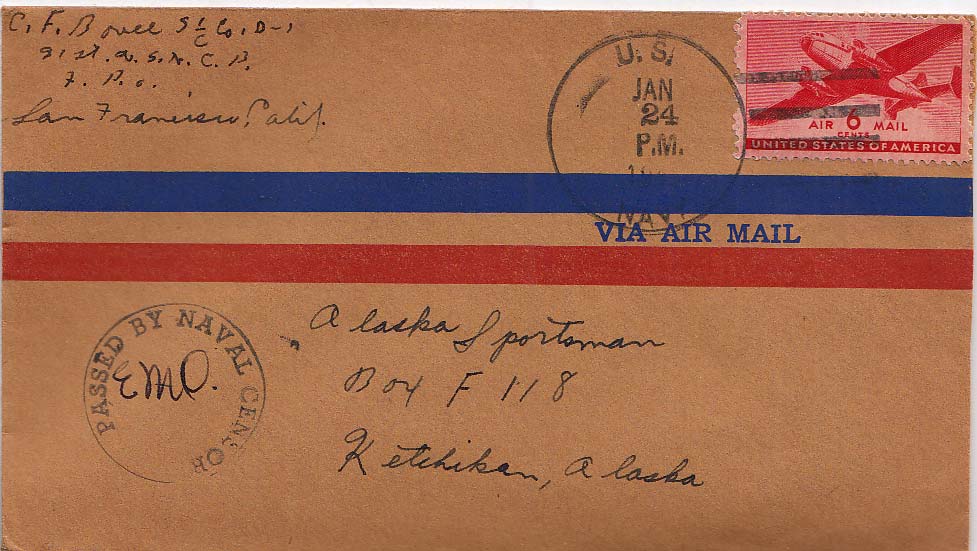 C. F. S 1/C Co. D-1
91 st. N. C. B.
F. P. O.
San Francisco, Calif.
U. S.
JAN
24
P.M.
NAVY
AIR 6 MAIL
CENTS
UNITED STATES OF AMERICA
VIA AIR MAIL
PASSED BY NAVAL CENSOR
EMO.
Alaska Sportsman
Box F 118
Ketchikan, Alaska